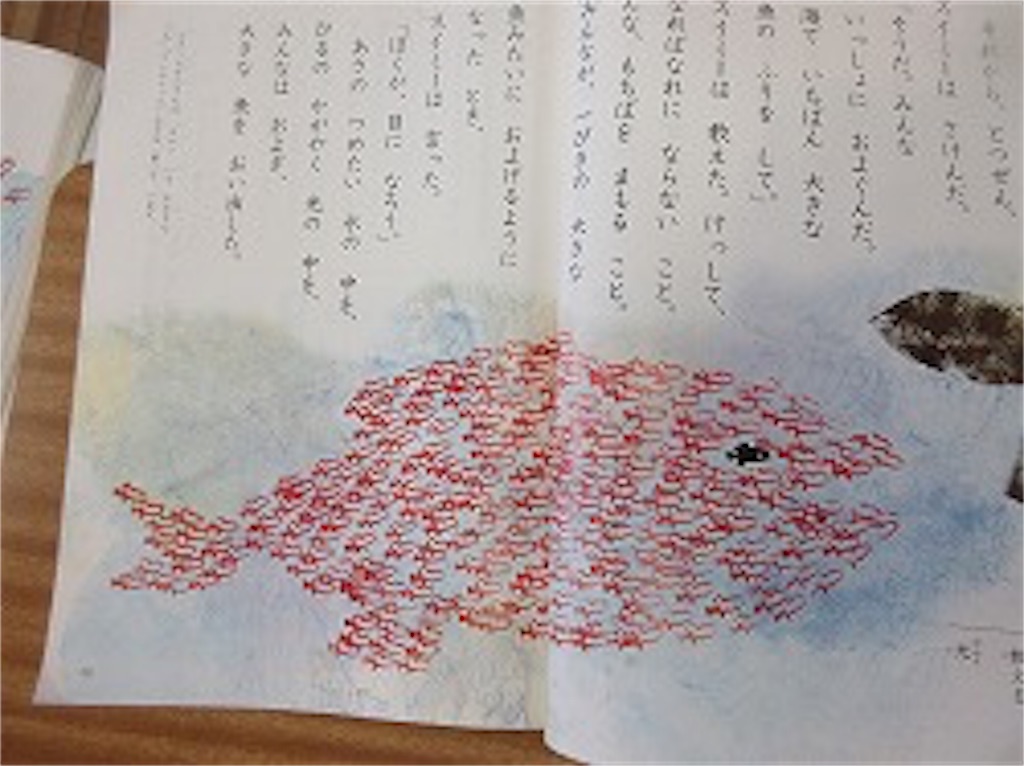 それから、とつぜん、
スイミーは さけんだ。
「そうだ。みんな
いっしょに およぐんだ。
海で いちばん 大きな
魚の ふりを して。」
スイミーは 教えた。けっして、
なればなれに ならない こと。
んな、もちばを まもる こと。
みんなが、一ぴきの 大きな
魚みたいに およげるように
なった とき、
スイミーは 言った。
「ぼくが、目に なろう。」
あさの つめたい 水の 中を、
ひるの かがやく 光の 中を、
みんなは およぎ、
大きな 魚を おい出した。